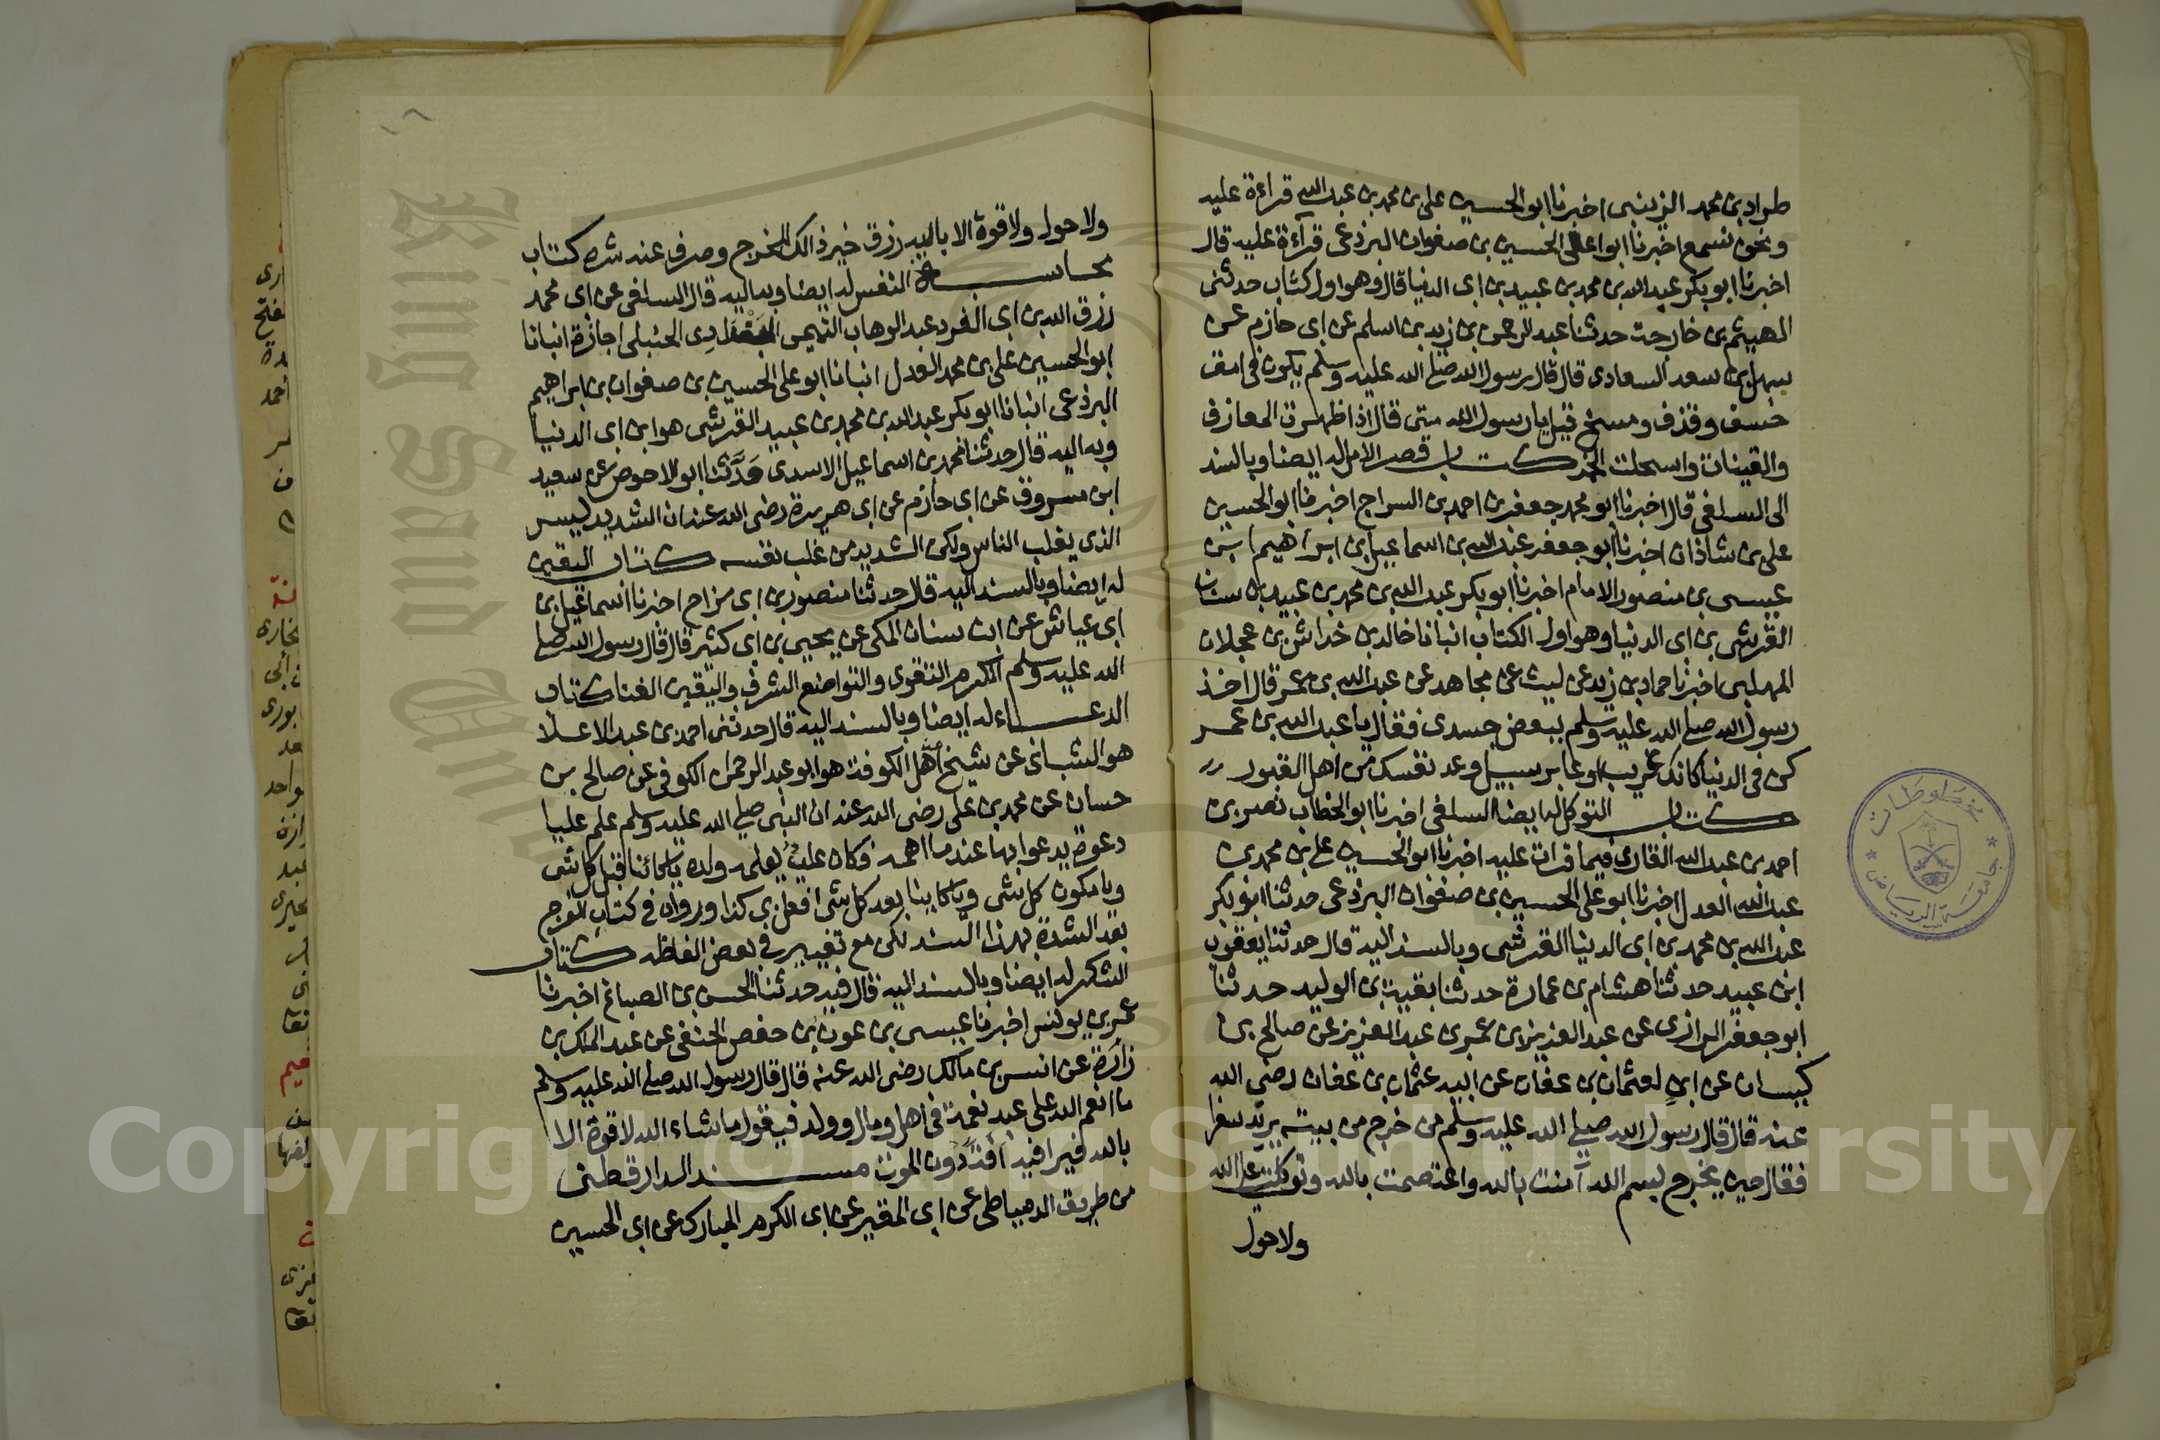 طراد بن محمد الزينبي اخبرنا ابو الحسين علي بن محمد بن عبد الله قراءة عليه
ونحن نسمع اخبرنا ابو علي الحسين بن صفوان البرذعي قرآءة عليه قال
اخبرنا ابو بكر عبد الله بن محمد بن عبيد بن ابي الدنيا قال وهو اول كتاب حدثني
الهيثم بن خارجة حدثنا عبد الرحمن بن زيد بن اسلم عن ابي حازم عن
سهل بن سعد الساعدي قال قال رسول الله صلى الله عليه وسلم يكون في امتي
خسف وقذف ومسخ قيل يا رسول الله متى قال اذا ظهرت المعازف
والقينات واستحلت الخمر كتاب قصر الامل له ايضا وبالسند
الى السلفي قال اخبرنا ابو محمد جعفر بن احمد بن السراج اخبرنا ابو الحسين
علي بن شاذان اخبرنا ابو جعفر عبد الله بن اسماعيل بن ابراهيم ابن
عيسى بن منصور الامام اخبرنا ابو بكر عبد الله بن محمد بن عبيد بن سنان
القرشي بن ابي الدنيا وهو اول الكتاب انبانا خالد بن خداش بن عجلان
المهلبي اخبرنا حماد بن زيد عن ليث عن مجاهد عن عبد الله بن عمر قال اخذ
رسول الله صلى الله عليه وسلم ببعض جسدي فقال يا عبد الله بن عمر
كن في الدنيا كانك غريب او عابر سبيل وعد نفسك من اهل القبور
كتاب التوكل له ايضا السلفي اخبرنا ابو الخطاب نصر بن
احمد بن عبد الله القاري فيما قرات عليه اخبرنا ابو الحسين علي بن محمد بن
عبد الله العدل اخبرنا ابو علي الحسين بن صفوان البرذعي حدثنا ابو بكر
عبد الله بن محمد بن ابي الدنيا القرشي وبالسند اليه قال حدثنا يعقوب
ابن عبيد حدثنا هشام بن عمارة حدثنا بقية بن الوليد حدثنا
ابو جعفر الرازي عن عبد العزيز بن عمر بن عبد العزيز عن صالح بن
كيسان عن ابن لعثمان بن عفان عن ابيه عثمان بن عفان رضي الله
عنه قال قال رسول الله صلى الله عليه وسلم من خرج من بيته يريد سفرا
فقال حين يخرج بسم الله آمنت بالله واعتصمت بالله وتوكلت على الله
ولا حول
ولا حول ولا قوة الا بالله رزق خير ذالك المخرج وصرف عنه شره كتاب
محاسبة النفس له ايضا وبه اليه قال السلفي عن ابي محمد
رزق الله بن ابي الفرد عبد الوهاب التيمي البغدادي الحنبلي اجازة انبانا
ابو الحسين علي بن محمد العدل انبانا ابو علي الحسين بن صفوان بن ابراهيم
البرذعي انبانا ابو بكر عبد الله بن محمد بن عبيد القرشي هو ابن ابي الدنيا
وبه اليه قال حدثنا محمد بن اسماعيل الاسدي حدثنا ابو الاحوص عن سعيد
ابن مسروق عن ابي حازم عن ابي هريرة رضي الله عنه ان الشديد ليس
الذي يغلب الناس ولكن الشديد من غلب نفسه كتاب اليقين
له ايضا وبالسند اليه قال حدثنا منصور بن ابي مزاحم اخبرنا اسماعيل بن
ابي عياش عن ابن سنان المكي عن يحيى بن ابي كثير قال قال رسول الله صلى
الله عليه وسلم الكرم التقوى والتواضع الشرف واليقين الغنا كتاب
الدعاء له ايضا وبالسند اليه قال حدثني احمد بن عبد الاعلا
هو الشباني عن شيخ اهل الكوفة هو ابو عبد الرحمان الكوفي عن صالح بن
حسان عن محمد بن علي رضي الله عنه ان النبي صلى الله عليه وسلم علم عليا
دعوة يدعو بها عند ما اهمه فكان علي يعلمه ولده يا كائنا قبل كل شي
ويا مكون كل شي ويا كاينا بعد كل شي افعل بي كذا ورواه في كتاب الفرج
بعد الشدة بهذا السند لكن مع تغيير في بعض الفاظه كتاب
الشكر له ايضا وبالسند اليه قال فيه حدثنا الحسن بن الصباغ اخبرنا
عمر بن يونس اخبرنا عيسى بن عون بن حفص الحنفي عن عبد الملك بن
زائرة عن انس بن مالك رضي الله عنه قال قال رسول الله صلى الله عليه وسلم
ما انعم الله على عبد نعمة في اهل ومال وولد فيقول ما شاء الله لا قوة الا
بالله فيرا فيه آفة دون الموت مسند الدارقطني
من طريق الدمياطي عن ابي المقير عن ابي الكرم المبارك عن ابي الحسين
مخطوطات
جامعة الرياض
King Saud Univ
Copyright © King Saud University